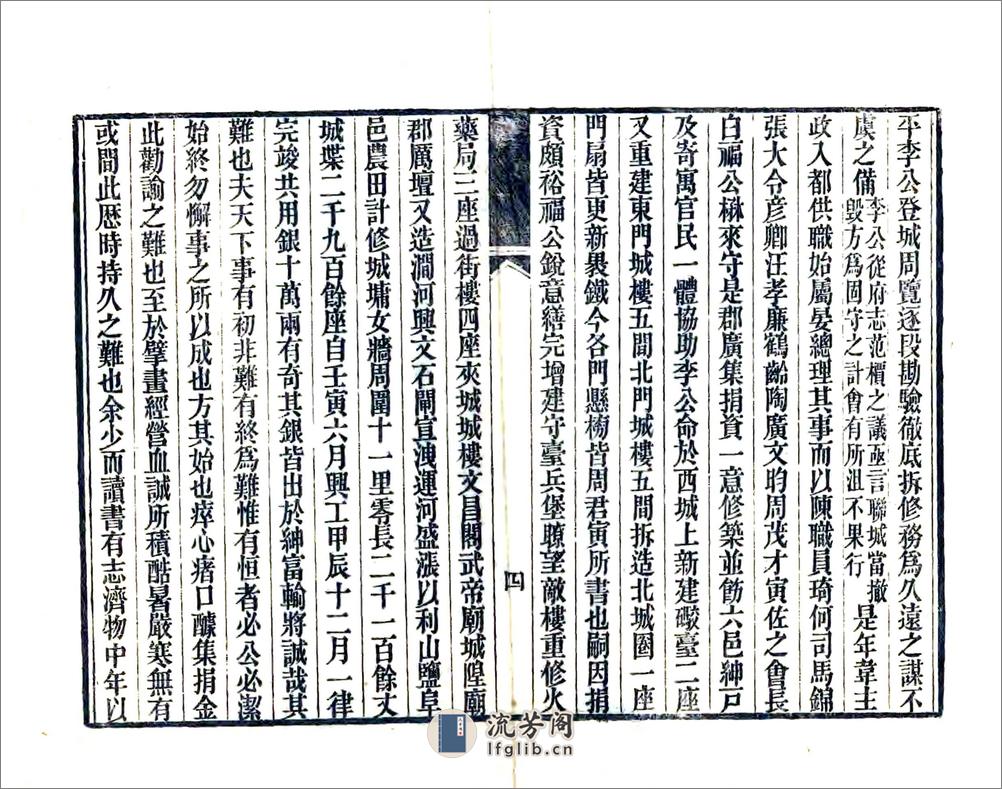 平李公登城周覽逐段勘驗徹底拆修務爲久遠之謀不
虞之備李公從府志范檟之議亟言聯城當撤
毀方爲固守之計會有所沮不果行是年韋主
政入都供職始屬晏總理其事而以陳職員琦何司馬錦
張大令彦卿汪孝廉鶴齡陶廣文昀周茂才寅佐之會長
白福公楙來守是郡廣集捐貲一意修築並飭六邑紳戸
及寄寓官民一體協助李公命於西城上新建礮臺二座
又重建東門城樓五間北門城樓五間拆造北城圈一座
門扇皆更新裹鐵今各門懸榜皆周君寅所書也嗣因捐
資頗裕福公銳意繕完增建守臺兵堡瞭望敵樓重修火
四
藥局三座過街樓四座夾城城樓文昌閣武帝廟城隍廟
郡厲壇又造澗河興文石閘宣洩運河盛漲以利山鹽阜
邑農田計修城墉女牆周圍十一里零長二千一百餘丈
城堞二千九百餘座自壬寅六月興工甲辰十二月一律
完竣共用銀十萬兩有奇其銀皆出於紳富輸將誠哉其
難也夫天下事有初非難有終爲難惟有恒者必公必潔
始終勿懈事之所以成也方其始也瘁心瘏口醵集捐金
此勸諭之難也至於擘畫經營血誠所積酷暑嚴寒無有
或間此歴時持久之難也余少而讀書有志濟物中年以
流芳阁
lfglib.cn